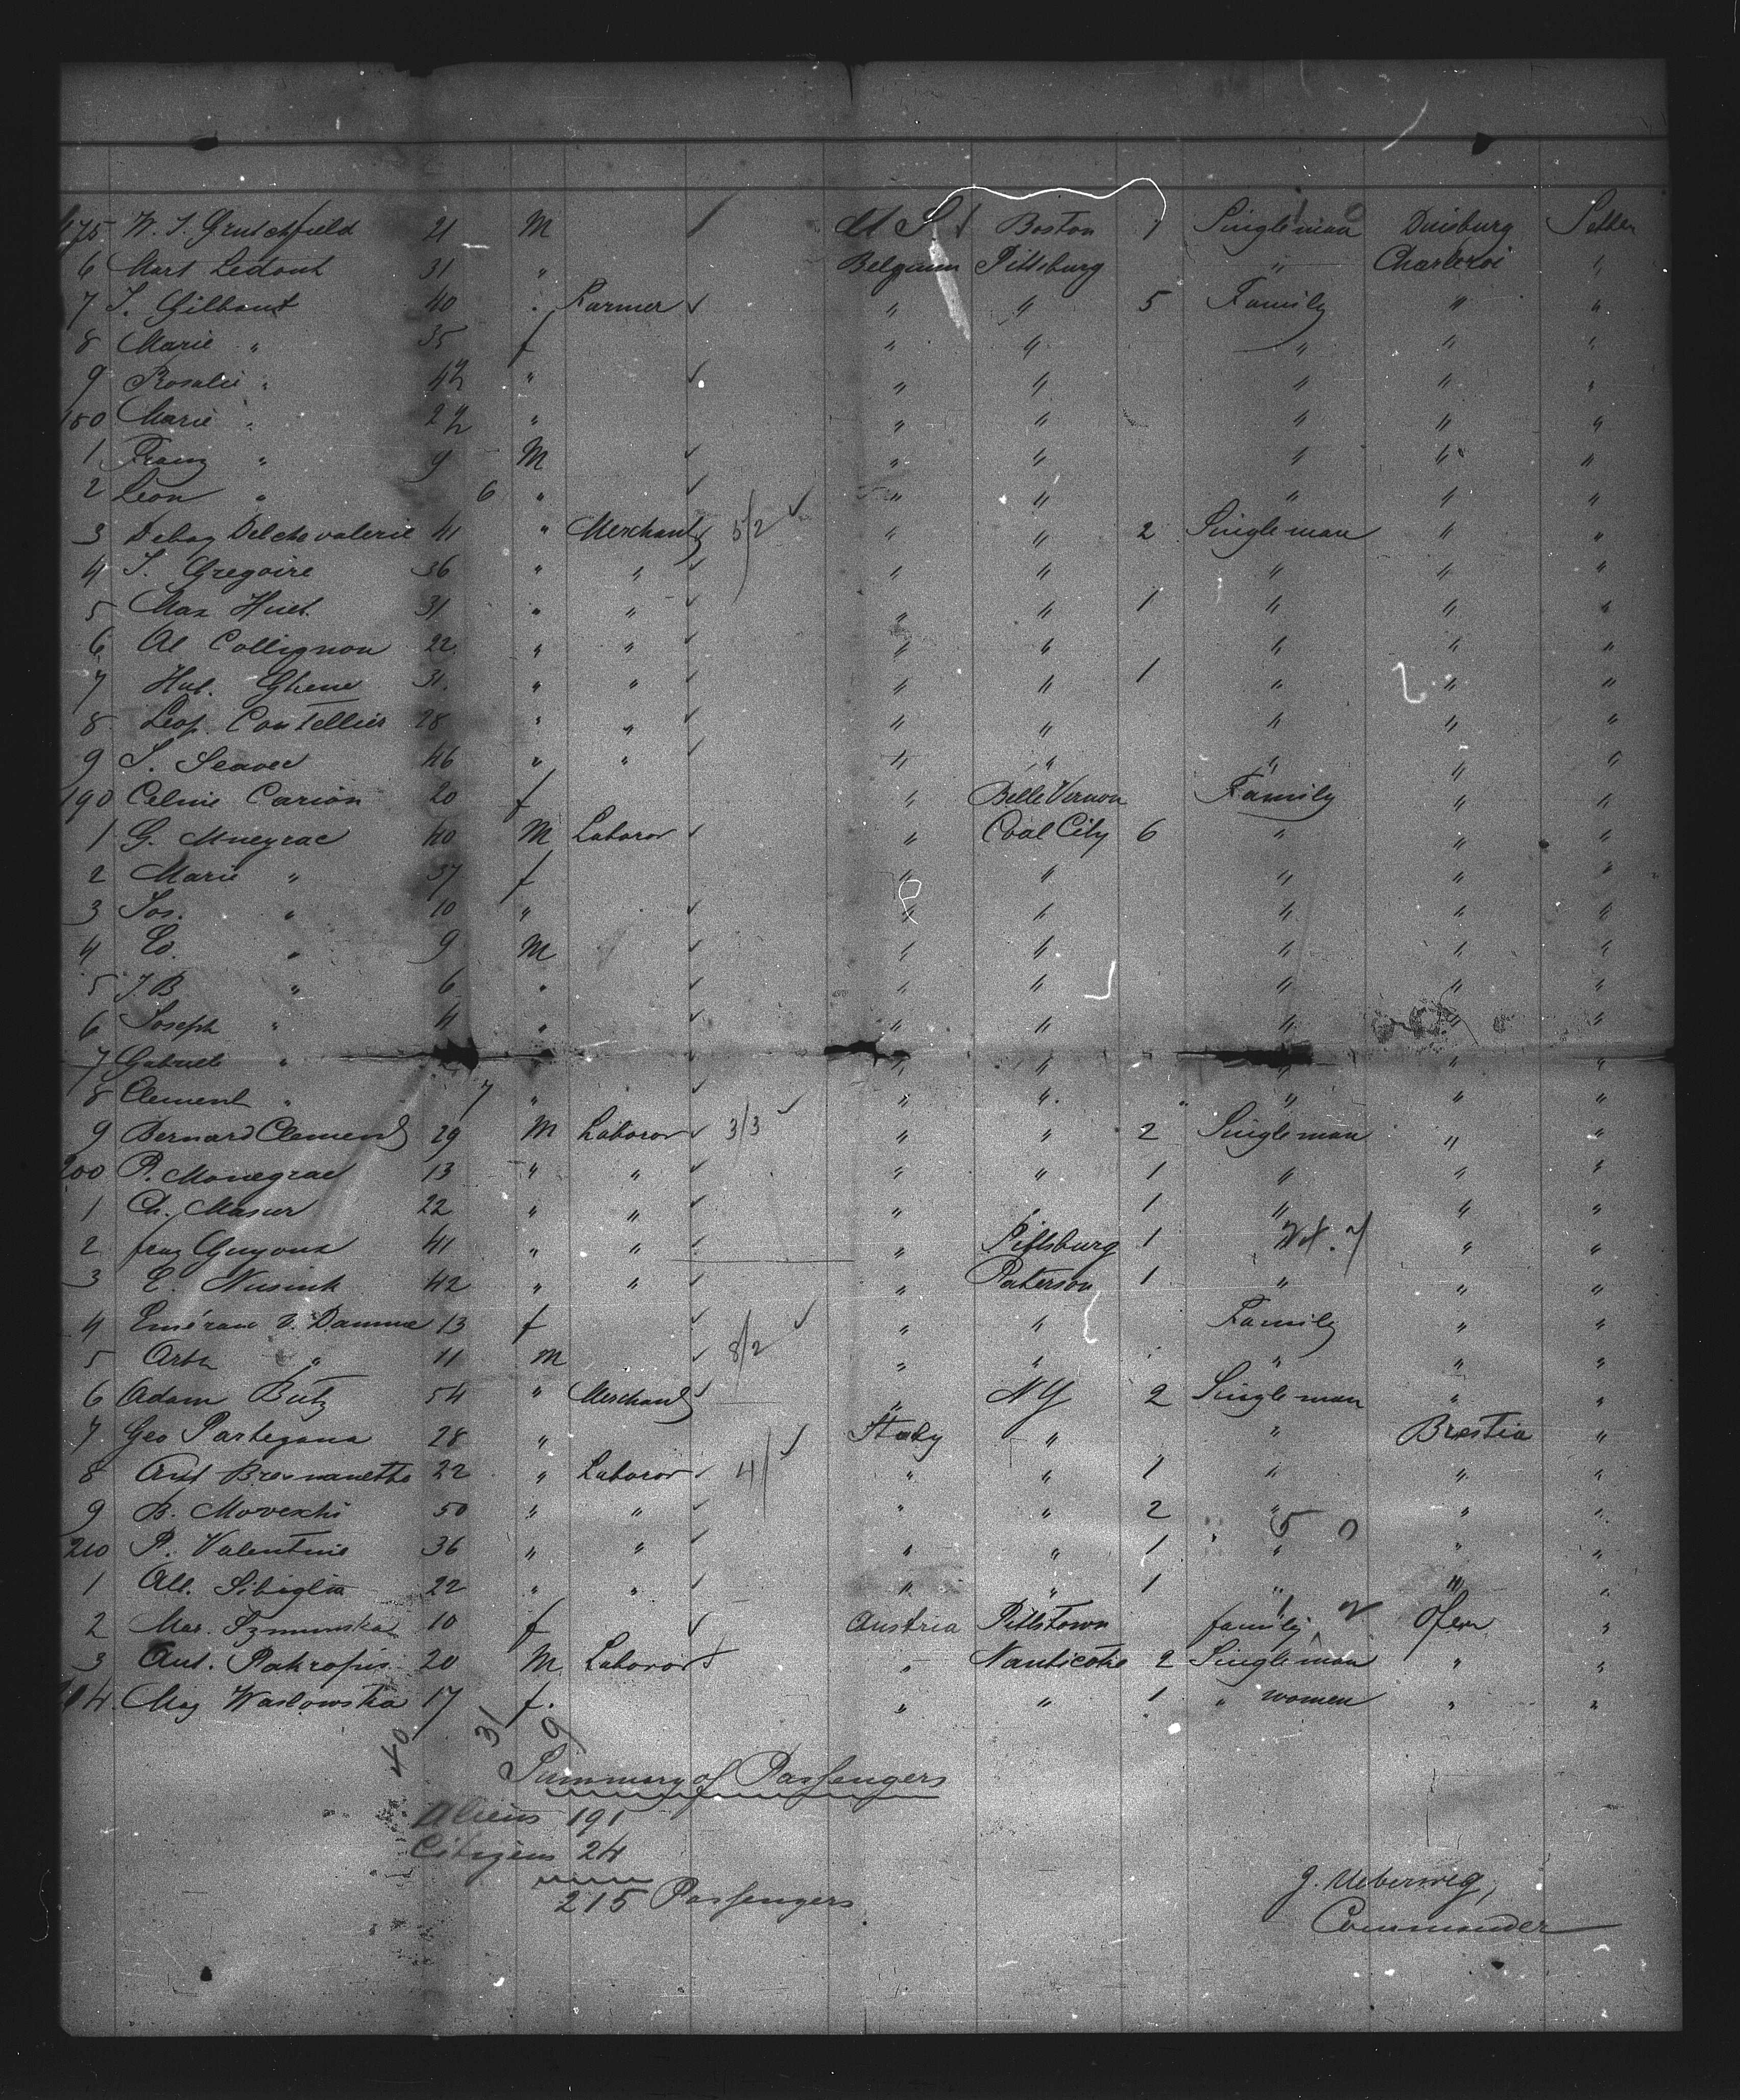 175 W. J. Grutchfield 21 M U S Boston 1 Single man Duisburg Settler
6 Mart Ledont 31 " Belgium Pittsburg " Charleroi "
7 J. Gilbant 40 " Farmer " " 5 Family " "
8 Marie " 35 f " " " " "
9 Rosalie " 4½ " " " " " "
180 Marie " 2½ " " " " " "
1 Franz " 9 M " " " " "
2 Leon " 6 " " " " " "
3 Debay Delchevalerie 41 " Merchant 5/2 " " 2 Single man " "
4 J. Gregoire 36 " " " " " " "
5 Max Huet 31 " " " " 1 " " "
6 Al Collignon 22 " " " " " " "
7 Hub. Ghene 31. " " " " 1 " " "
8 Leop. Contellier 28 " " " " " " "
9 J. Seavee 46 " " " " " " "
190 Celine Carion 20 f " Belle Vernon Family " "
1 G. Mnegrae 40 M Laboror " Coal City 6 " " "
2 Marie " 37 f " " " " "
3 Jos. " 10 " " " " " "
4 Ed. " 9 M " " " " "
5 J. B " 6 " " " " " "
6 Joseph " 4 " " " " " "
7 Gabriele " " " " " "
8 Clement " 7 " " " " " "
9 Bernard Clement 29 M Laboror 3/3 " " 2 Single man " "
200 P. Monegrae 13 " " " " 1 " " "
1 Ch. Masur 22 " " " " 1 " " "
2 franz Guyoux 41 " " " Pittsburg 1 " " "
3 E. Nusink 42 " " " Paterson 1 " " "
4 Emérau v. Damme 13 f " " Family " "
5 Arth " 11 M 8/2 " " " " "
6 Adam Butz 54 " Merchant " N Y 2 Single man " "
7 Geo Partegana 28 " Italy " " Brestia "
8 Ant Bresnanetto 22 " Laboror 4/ " " 1 " " "
9 B. Moveschi 50 " " " " 2 " " "
210 P. Valentinis 36 " " " " 1 " " "
1 All. Sibiglia 22 " " " " 1 " " "
2 Mar. Szmunska 10 f Austria Pittstown family Ofen "
3 Ant. Pakropis 20 M Laboror " Nanticotie 2 Single man " "
14 Mag Waslowska 17 f. " " 1 " women " "
40 31 9
Summary of Passengers
Aliens 191
Citizens 24
215 Passengers
J. Ueberweg,
Commander